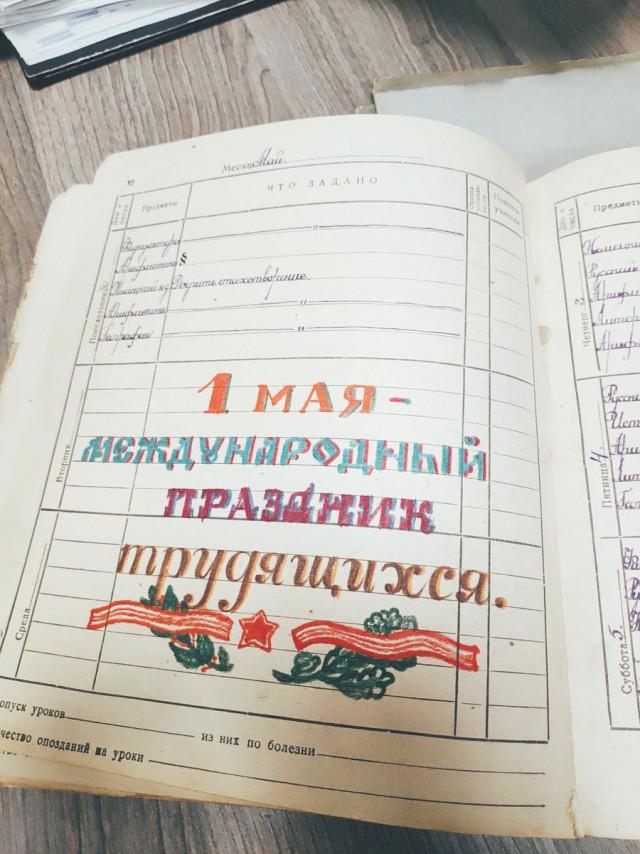 Месяц Май
Дни и числа
Предметы
ЧТО ЗАДАНО
Понедельник
Физкультура "
Арифметика §
Немецкий яз. Поучить стихотворение
Арифметика "
География "
Вторник
Среда
1 МАЯ -
МЕЖДУНАРОДНЫЙ
ПРАЗДНИК
трудящихся.
опуск уроков из них по болезни
чество опозданий на уроки
Дни и числа
Предметы
Четверг 3
Немецки
Русский
Арифм
Литер
Арифм
Пятница 4
Русск
Ист
Ари
Лит
Гео
Суббота 5